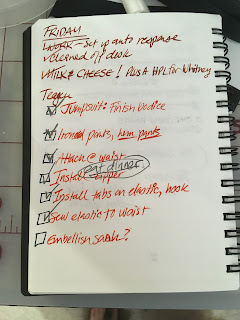 FRIDAY
WORK - set up auto response
✓cleaned off desk
MILK & CHEESE! Plus A HPL for Whitney
Jumpsuit: Finish bodice
Ironed pants, hem pants
Attach @ waist
eat dinner
Install zipper
Install tabs on elastic, hook
Sew elastic to waist
Embellish sash?